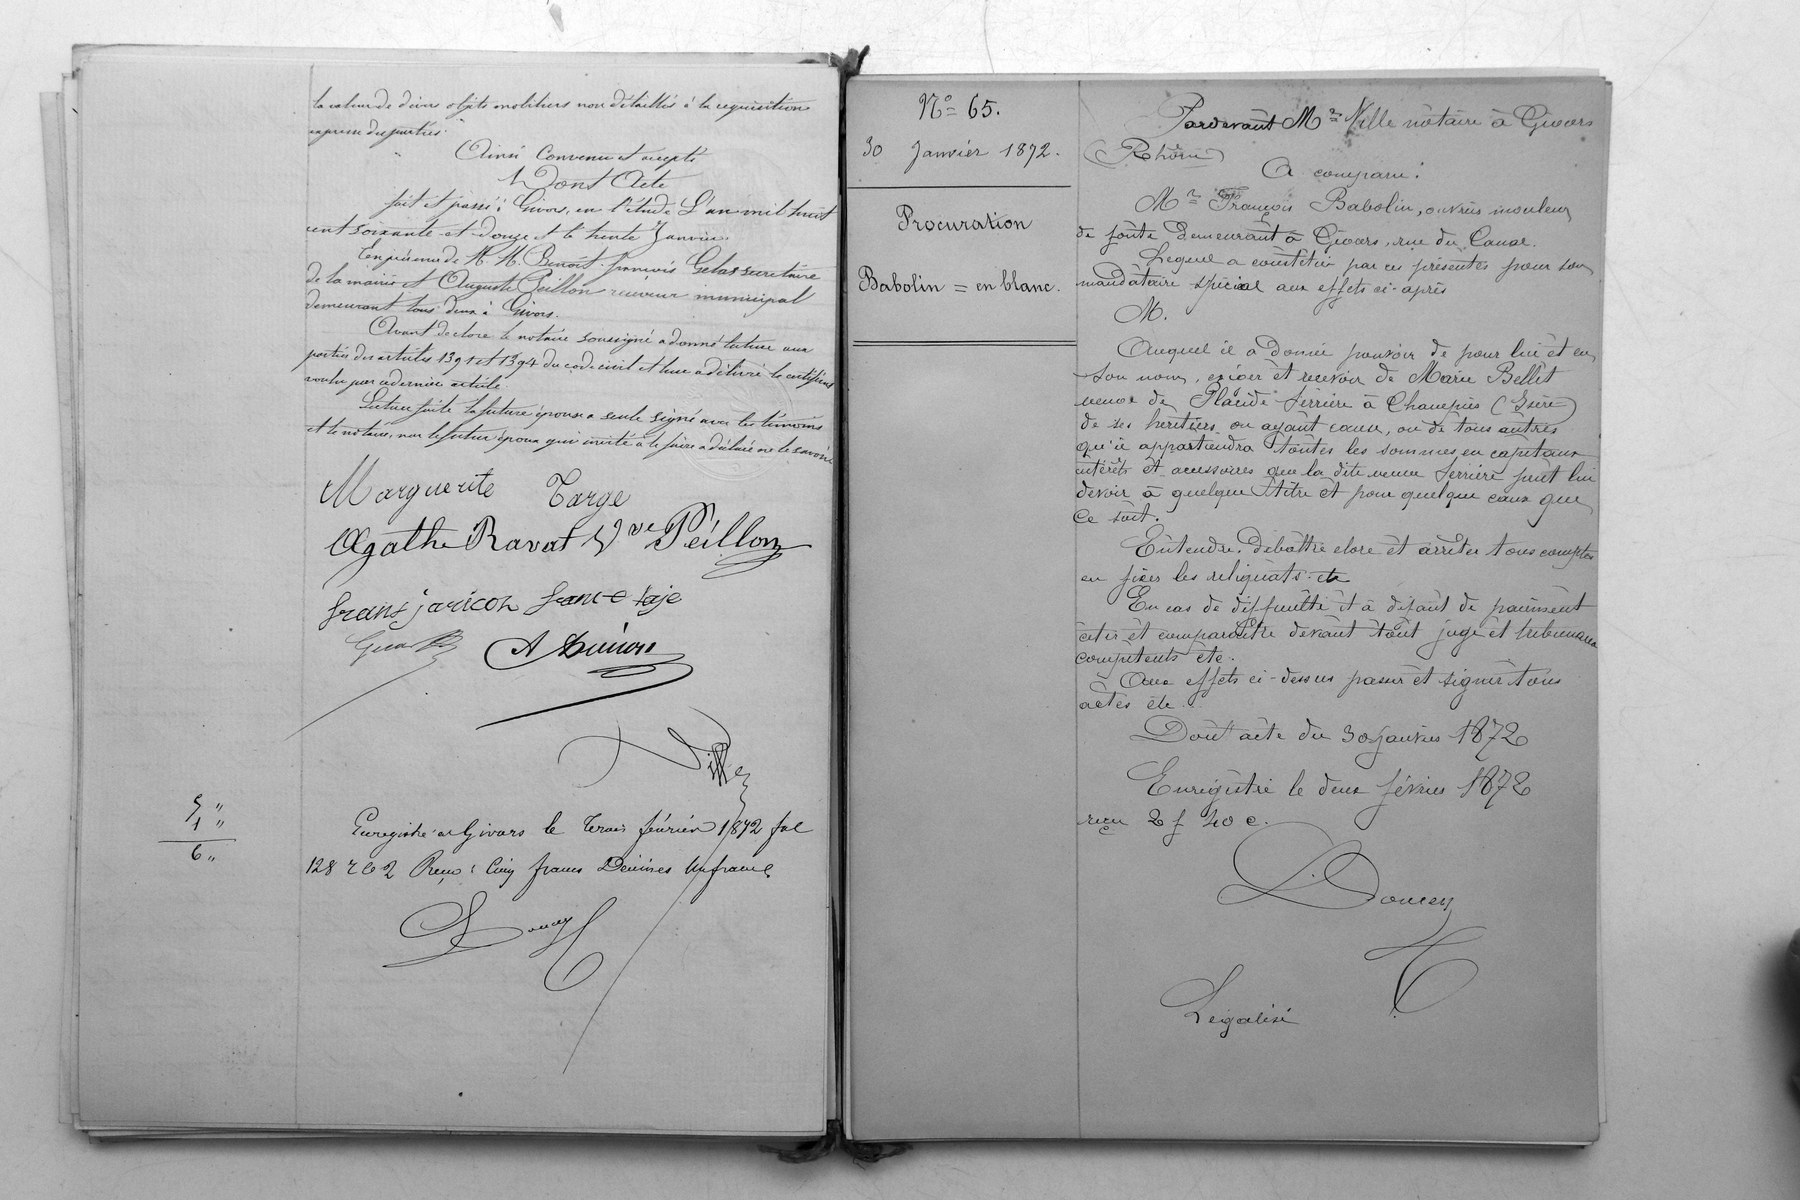 la valeur de divers objets mobiliers non détaillés à la requisition
expresse des parties.
Ainsi convenu et accepté
Dont Acte
fait et passé à Givors, en l'étude L'an mil huit
cent soixante et douze et le trente Janvier.
En présence de M. M. Benoît françois Gelas secrétaire
de la mairie et Auguste Peillon receveur municipal
demeurant tous deux à Givors.
Avant de clore le notaire soussigné a donné lecture aux
parties des articles 1391 et 1394 du code civil et leur a délivré le certificat
voulu par ce dernier article.
Lecture faite la future épouse a seule signé avec les témoins
et le notaire, non le futur époux qui invité à le faire a déclaré ne le savoir
Marguerite Targe
Agathe Ravat Vve Peillon
frans jaricot
Ville
5 "
1 "
6 "
Enregistré à Givors le trois février 1872 fol
128 r c 2 Reçu : Cinq francs Décimes un franc
Nº 65.
30 Janvier 1872.
Procuration
Babolin = en blanc.
Pardevant Me Ville nôtaire à Givors
(Rhône)
A comparu :
Mr François Babolin, ouvrier mouleur
de fonte demeurant à Givors, rue du Canal.
Lequel a constitué par ces présentes pour son
mandataire spécial aux effets ci-après
M.
Auquel il a donné pouvoir de pour lui et en
son nom, exiger et recevoir de Marie Bellet
veuve de Placide Ferrière à
(Isère)
de ses heritiers ou ayant cause, ou de tous autres
qu'il appartiendra toutes les sommes en capitaux
intérêts et accessoires que la dite veuve Ferrière peut lui
devoir à quelque titre et pour quelque cause que
ce soit.
Entendre, débattre clore et arrêter tous comptes
en fixer les reliquats etc
En cas de difficulté et à défaut de paiement
citer et comparaître devant tout juge et tribunaux
compétents etc.
Aux effets ci-dessus passer et signer tous
actes etc.
Dont acte du 30 janvier 1872
Enregistré le deux février 1872
reçu 2 f 40 c.
Légalisé